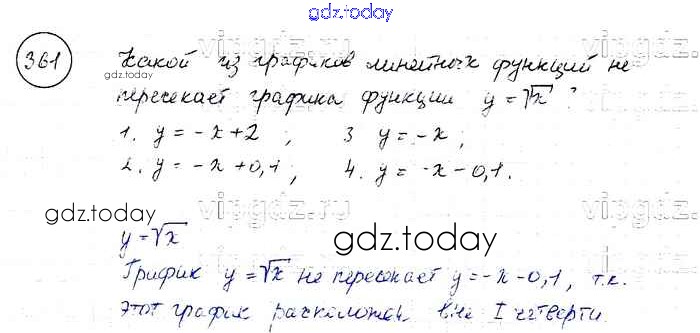 gdz.today
361 Какой из графиков линейных функций не
gdz.today
пересекает графика функции y = √x ?
1. y = -x + 2 ; 3 y = -x ;
2. y = -x + 0,1 ; 4. y = -x - 0,1.
gdz.today vipgdz.ru
y = √x
gdz.today
График y = √x не пересекает y = -x - 0,1, т.к.
этот график расположен вне I четверти.